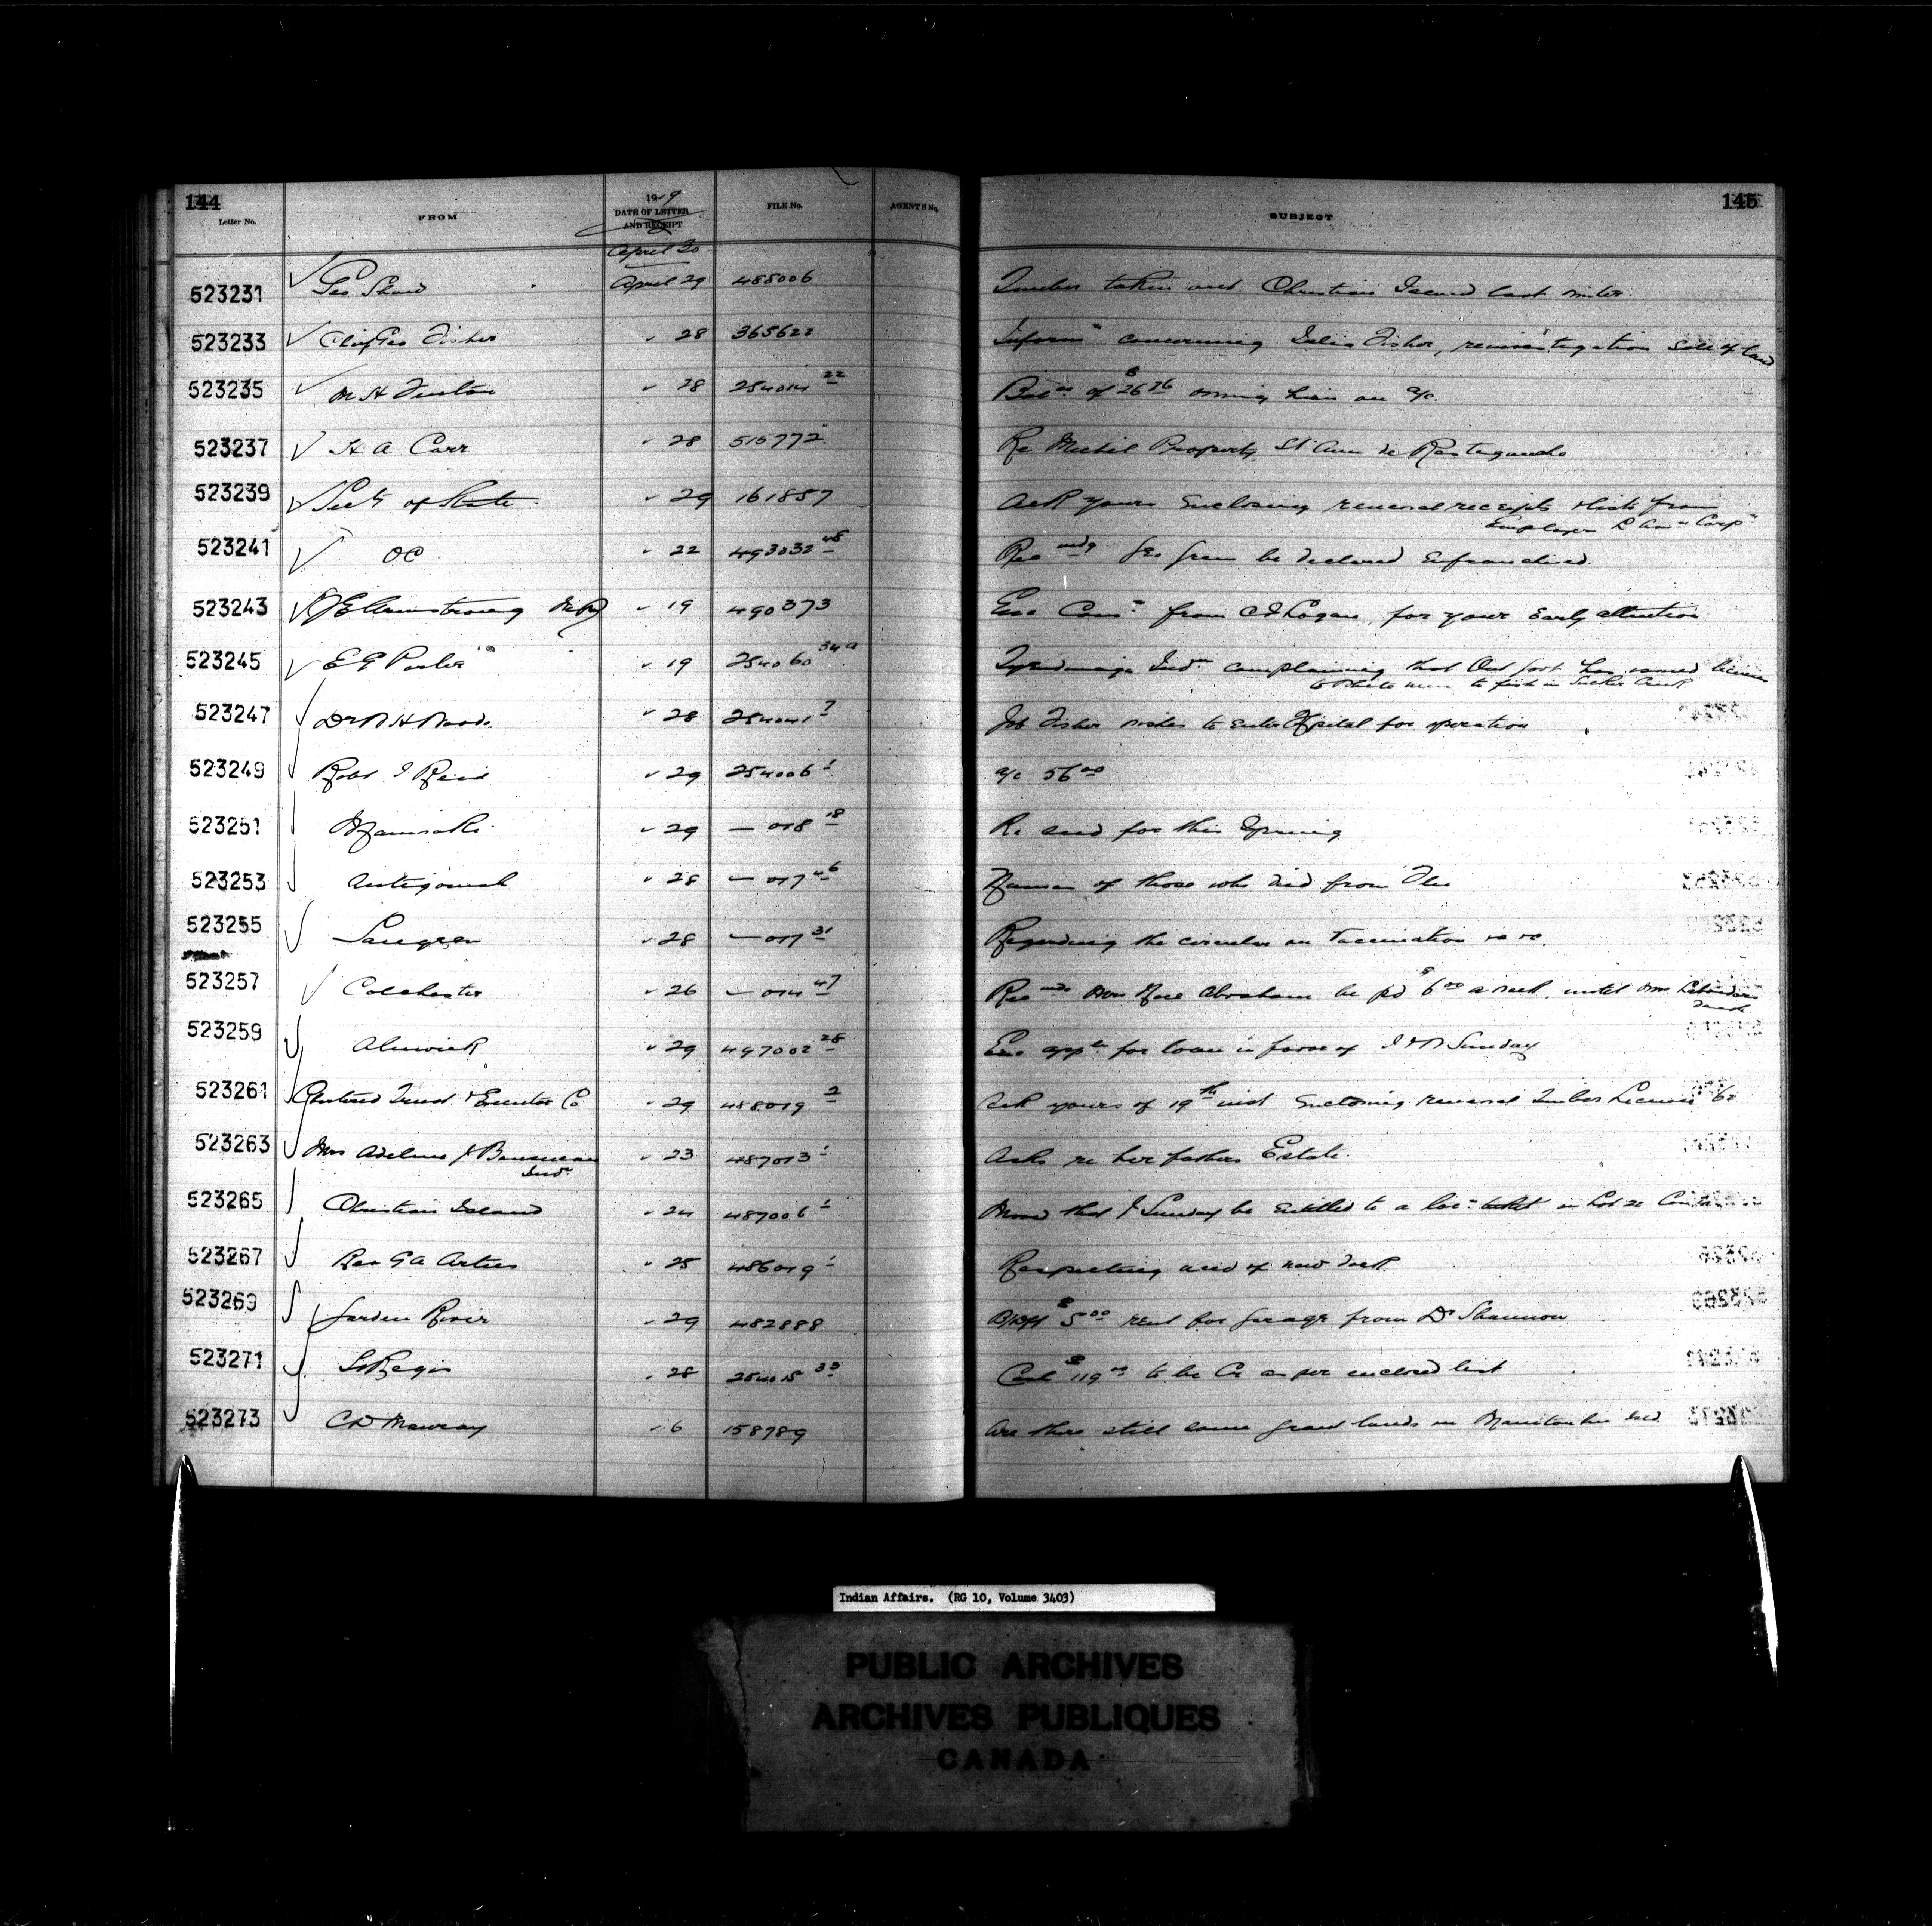 144
145
Letter No. FROM 1919 DATE OF LETTER AND RECEIPT FILE No. AGENTS No. SUBJECT
April 30
523231 Geo Shaw April 29 488006 Timber taken out Christian Island last winter.
523233 Chief Geo Fisher " 28 365622 Inform" concerning Fisher, reinvestigation Sale of land
523235 M H Fenton " 28 254014 22 Balce of $26 76 owing him on a/c.
523237 H A Carr " 28 515772 Re Michel Property, St Anne de Restigouche
523239 Secty of State " 29 161857 Ack yours Enclosing renewal receipts & list from
Employer L Corpn
523241 OC " 22 493032 48 Recmdg Geo Green be declared Enfranchised.
523243 J E Armstrong " 19 490373 Enc Comn from C I Logan, for your Early attention
523245 E G Porter " 19 254060 34a Tyendinaga Indns complaining that Ont Govt has issued licenses
to white men to fish in Sucker Creek
523247 Dr " 28 254041 7 Job Fisher wishes to enter Hospital for operation
523249 Robt I Reid " 29 254006 1 a/c 56 00
523251 " 29 — 018 18 Re seed for this Spring
523253 Antigonish " 28 — 017 46 Names of those who died from Flu
523255 Saugeen " 28 — 017 31 Regarding the circular on Vaccination &c &c.
523257 Colchester " 26 — 014 47 Recmds Mrs Abraham be pd $6 00 a week, until Mrs
death
523259 Alnwick " 29 497002 28 Enc appln for loan in favor of Sunday
523261 Chartered Trust & Executor Co " 29 488019 2 Ack yours of 19th inst Enclosing renewal Timber License
523263 Mrs Adeline J " 23 487013 1 Asks re her fathers Estate.
Indn
523265 Christian Island " 24 487006 1 that J Sunday be Entitled to a locn ticket on Lot 22
523267 Rev G A Artus " 25 486019 1 Respecting of new dock
523269 Garden River " 29 482888 $5 00 rent for garage from Dr Shannon
523271 St Regis " 28 254015 33 Cash $119 00 to be Cr as per enclosed list
523273 C D " 6 158789 Are there still some grant lands on Manitoulin Isld
Indian Affairs. (RG 10, Volume 3403)
PUBLIC ARCHIVES
ARCHIVES PUBLIQUES
CANADA